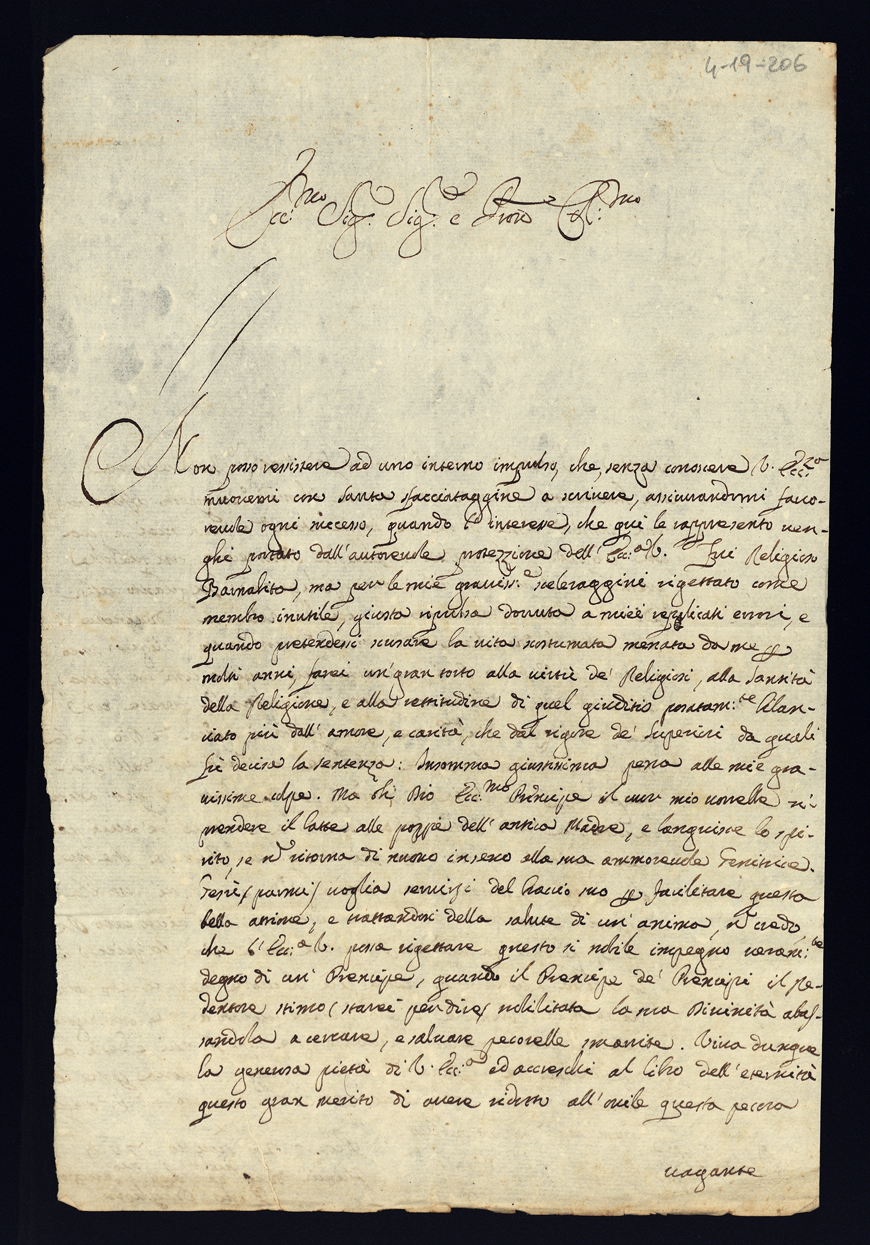 4-19-206
Ecc.mo Sig.r Sig.r e Pron Col.mo
Non posso resistere ad uno interno impulso, che senza conoscere V. Ecc.za
muovemi con santa sfacciataggine a scrivere, assicurandomi favo-
revole ogni successo, quando l'interesse, che qui le rappresento ven-
ghi portato dall'autorevole protezione dell'Ecc.a V. Fui Religioso
Barnabita, ma per le mie graviss.e sceleraggini rigettato come
membro inutile, giusta ripulsa dovuta a miei replicati errori, e
quando pretendessi scusare la vita scostumata menata da me p
molti anni, farei un gran torto alla virtù de' Religiosi, alla santità
della Religione, e alla rettitudine di quel giuditio portatam.te bilan-
ciato più dall'amore, e carità, che dal rigore de' Superiori da quali
fù decisa la sentenza: Insomma giustissima pena alle mie gra-
vissime colpe. Ma oh Dio Ecc.mo Principe il cuor mio vorrebbe ri-
prendere il latte alle poppe dell'antica Madre, e languisce lo spi-
rito, se nò ritorna di nuovo in seno alla sua ammorevole Genitrice.
Giesù (parmi) voglia servirsi del braccio suo p facilitare questa
bella attione, e trattandosi della salute di un'anima, nò credo,
che l'Ecc.a V. possa rigettare questo sì nobile impegno veram.te
degno di un Prencipe, quando il Prencipe de' Prencipi il Re-
dentore stimò (starei per dire) nobilitata la sua Divinità abas-
sandola a cercare, e salvare pecorelle smarrite. Viva dunque
la generosa pietà di V. Ecc.a ed accreschi al libro dell'eternità
questo gran merito di avere ridotto all'ovile questa pecora
vagante